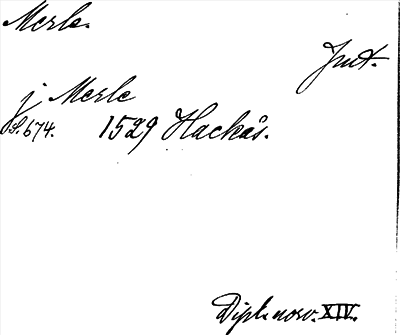 Merle.
Jmt.
j Merle
S. 674. 1529 Hackås.
Dipl. norv. XIV.